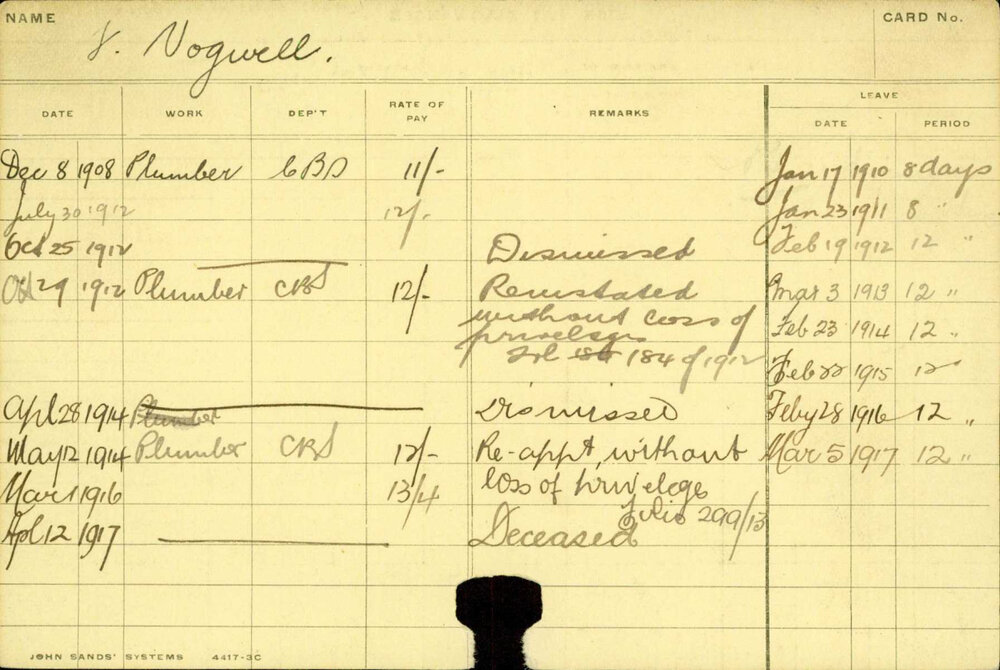 NAME
CARD No.
J. Vogwell.
DATE WORK DEP'T RATE OF PAY REMARKS LEAVE DATE PERIOD
Dec 8 1908 Plumber CBS 11/- Jan 17 1910 8 days
July 30 1912 12/- Jan 23 1911 8 "
Oct 25 1912 Dismissed Feb 19 1912 12 "
Oct 29 1912 Plumber CBS 12/- Reinstated Mar 3 1913 12 "
without loss of Feb 23 1914 12 "
priveleges
184 of 1912 Feb 22 1915 12
Apl 28 1914 Plumber Dismissed Feby 28 1916 12 "
May 12 1914 Plumber CBS 12/- Re-appt, without Mar 5 1917 12 "
Mar 1 1916 13/4 loss of privelege
Folio 299/13
Apl 12 1917 Deceased
JOHN SANDS' SYSTEMS 4417-3C